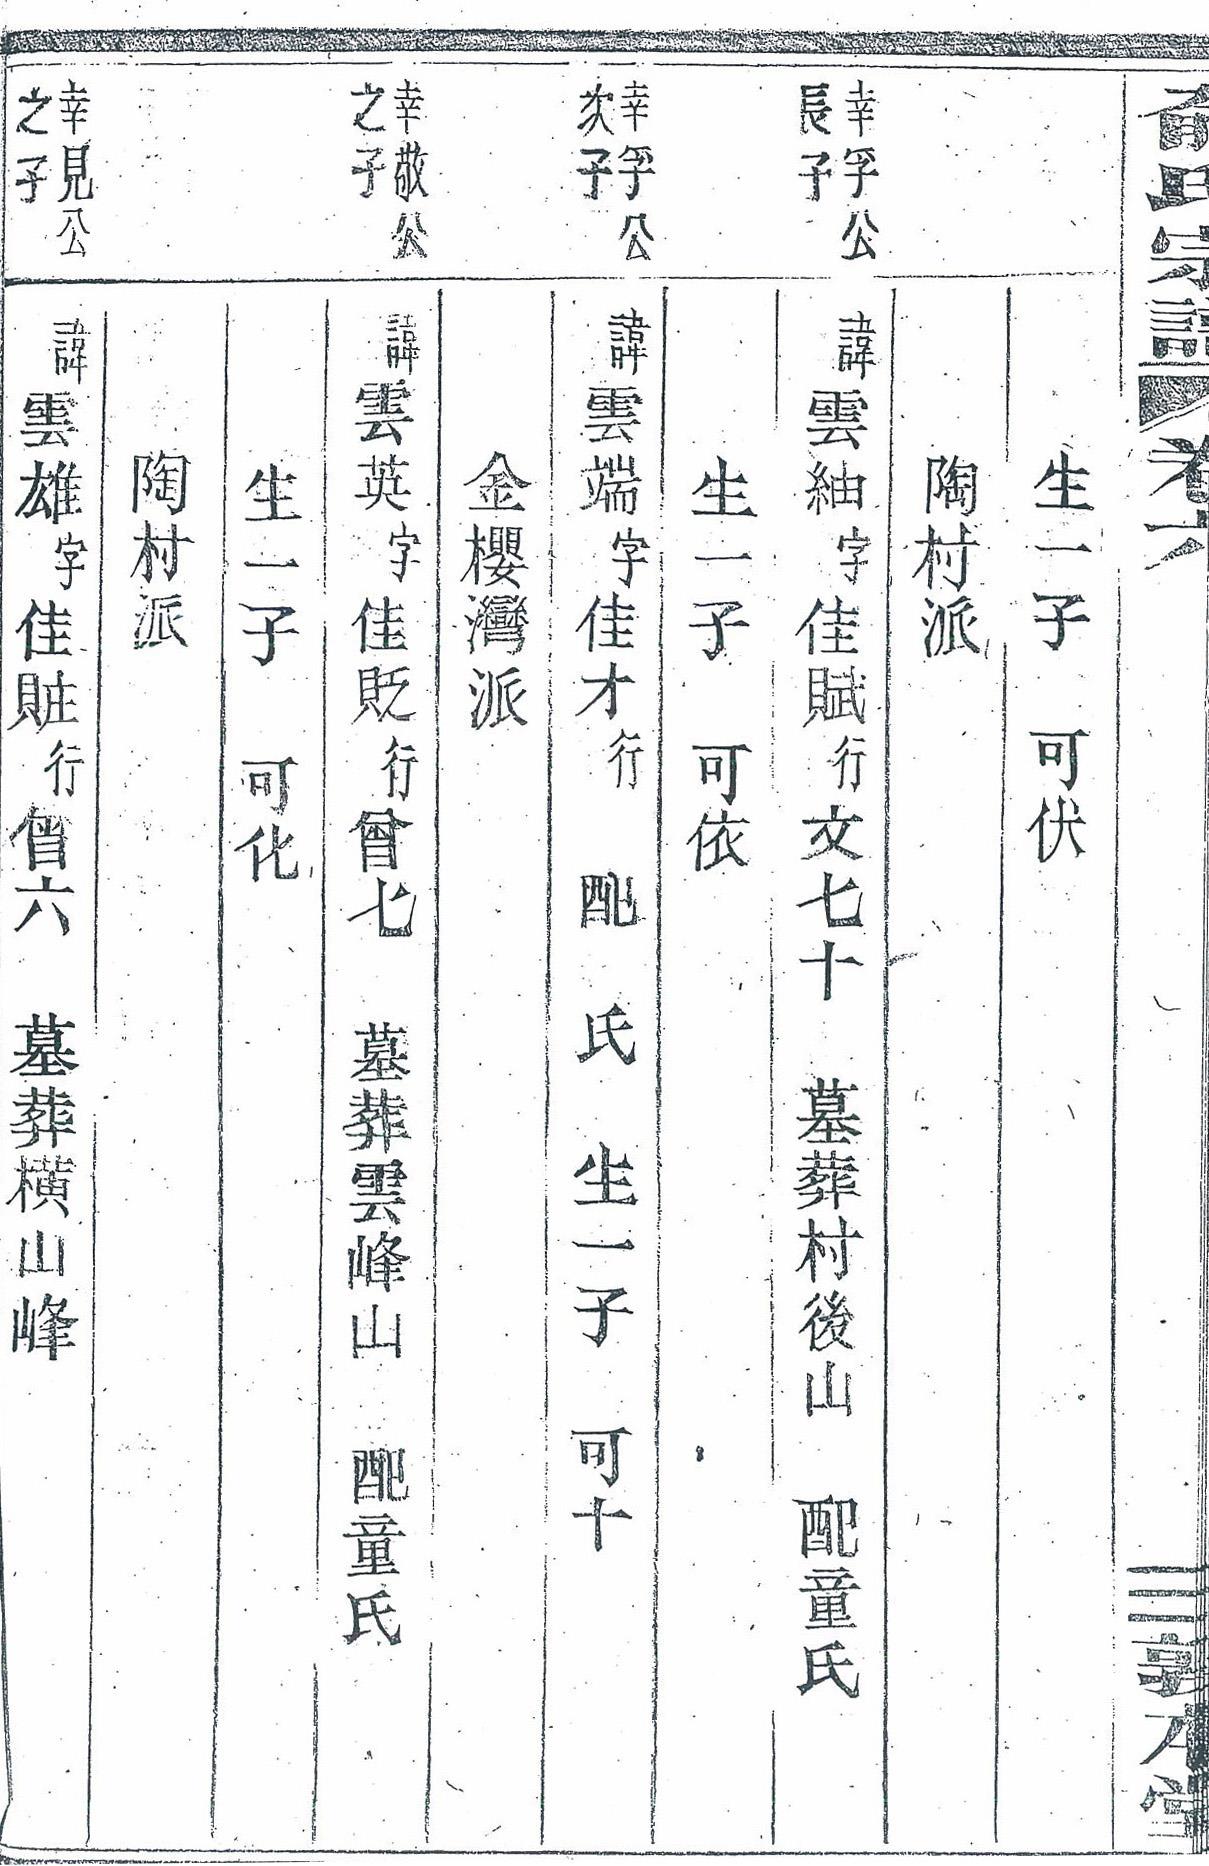 俞氏宗譜 卷六
三 敦本堂
生一子 可伏
陶村派
幸孚公
長子
諱雲紬字佳賦行文七十 墓葬村後山 配童氏
生一子 可依
幸孚公
次子
諱雲端字佳才行 配 氏 生一子 可十
金櫻灣派
幸敬公
之子
諱雲英字佳貶行曾七 墓葬雲峰山 配童氏
生一子 可化
陶村派
幸見公
之子
諱雲雄字佳賍行曾六 墓葬橫山峰